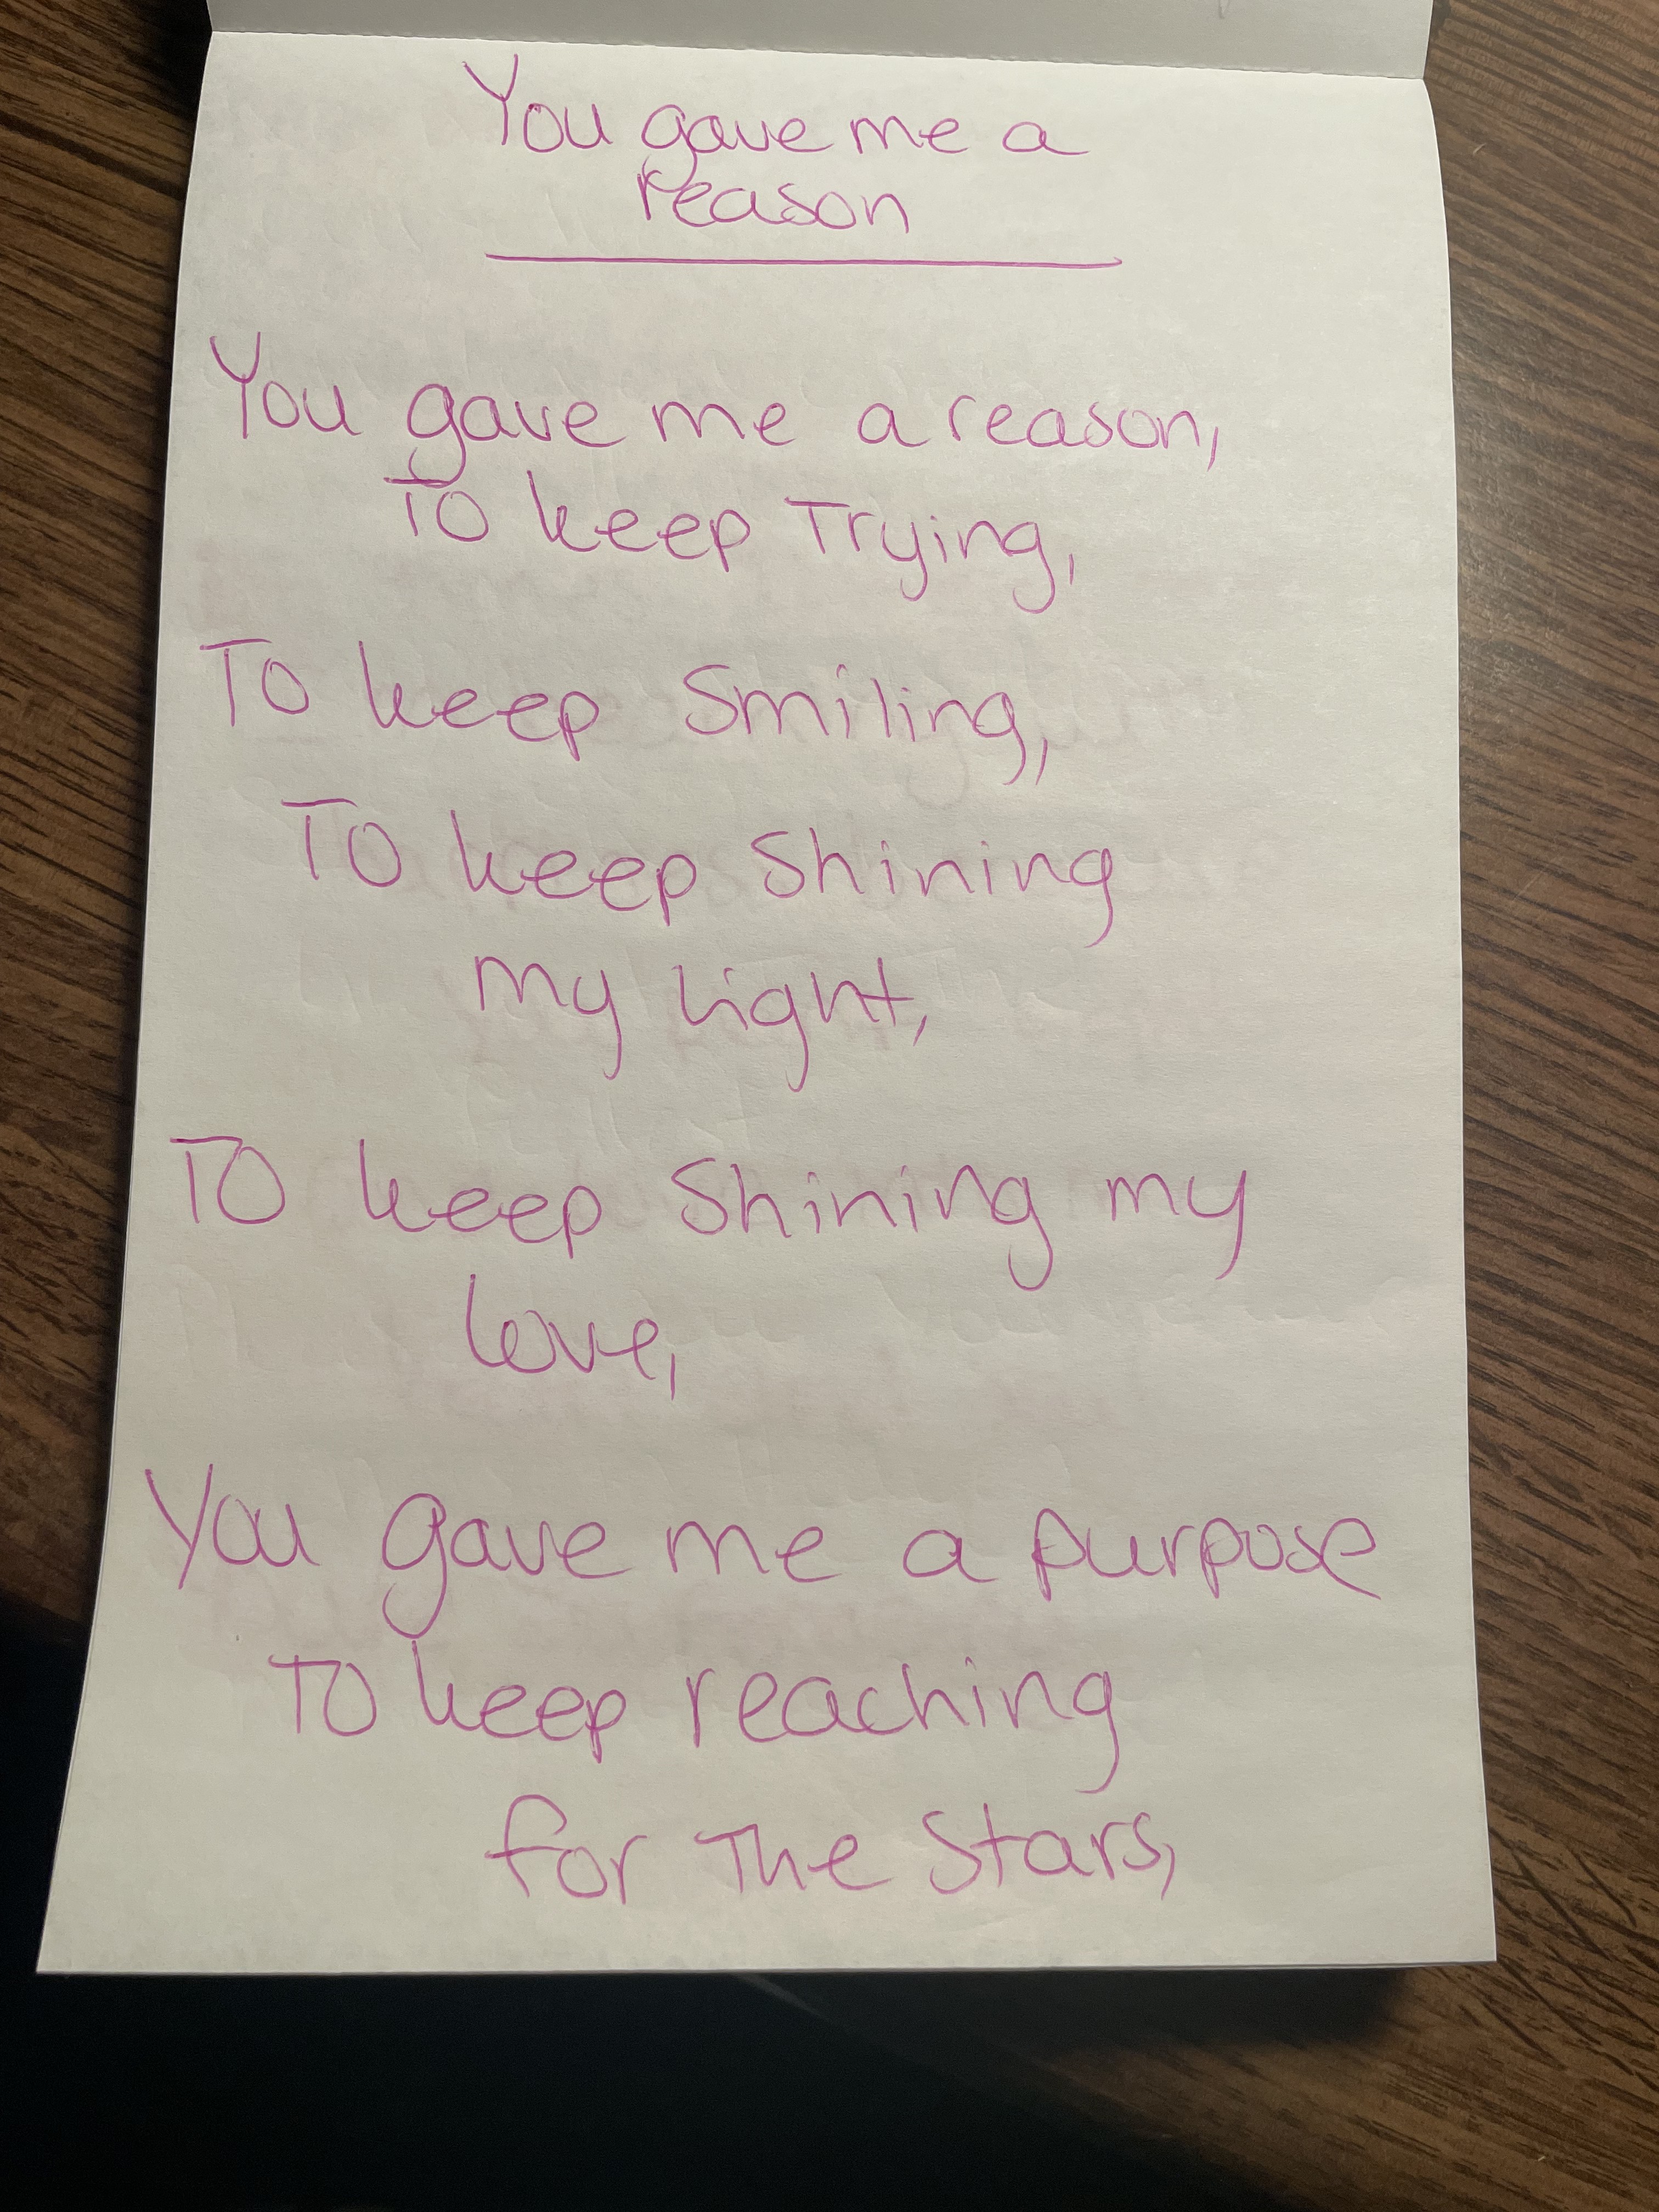 You gave me a
reason
You gave me a reason,
To keep Trying,
To keep Smiling,
To keep Shining
my Light,
To keep Shining my
Love,
You gave me a purpose
To keep reaching
for The Stars,